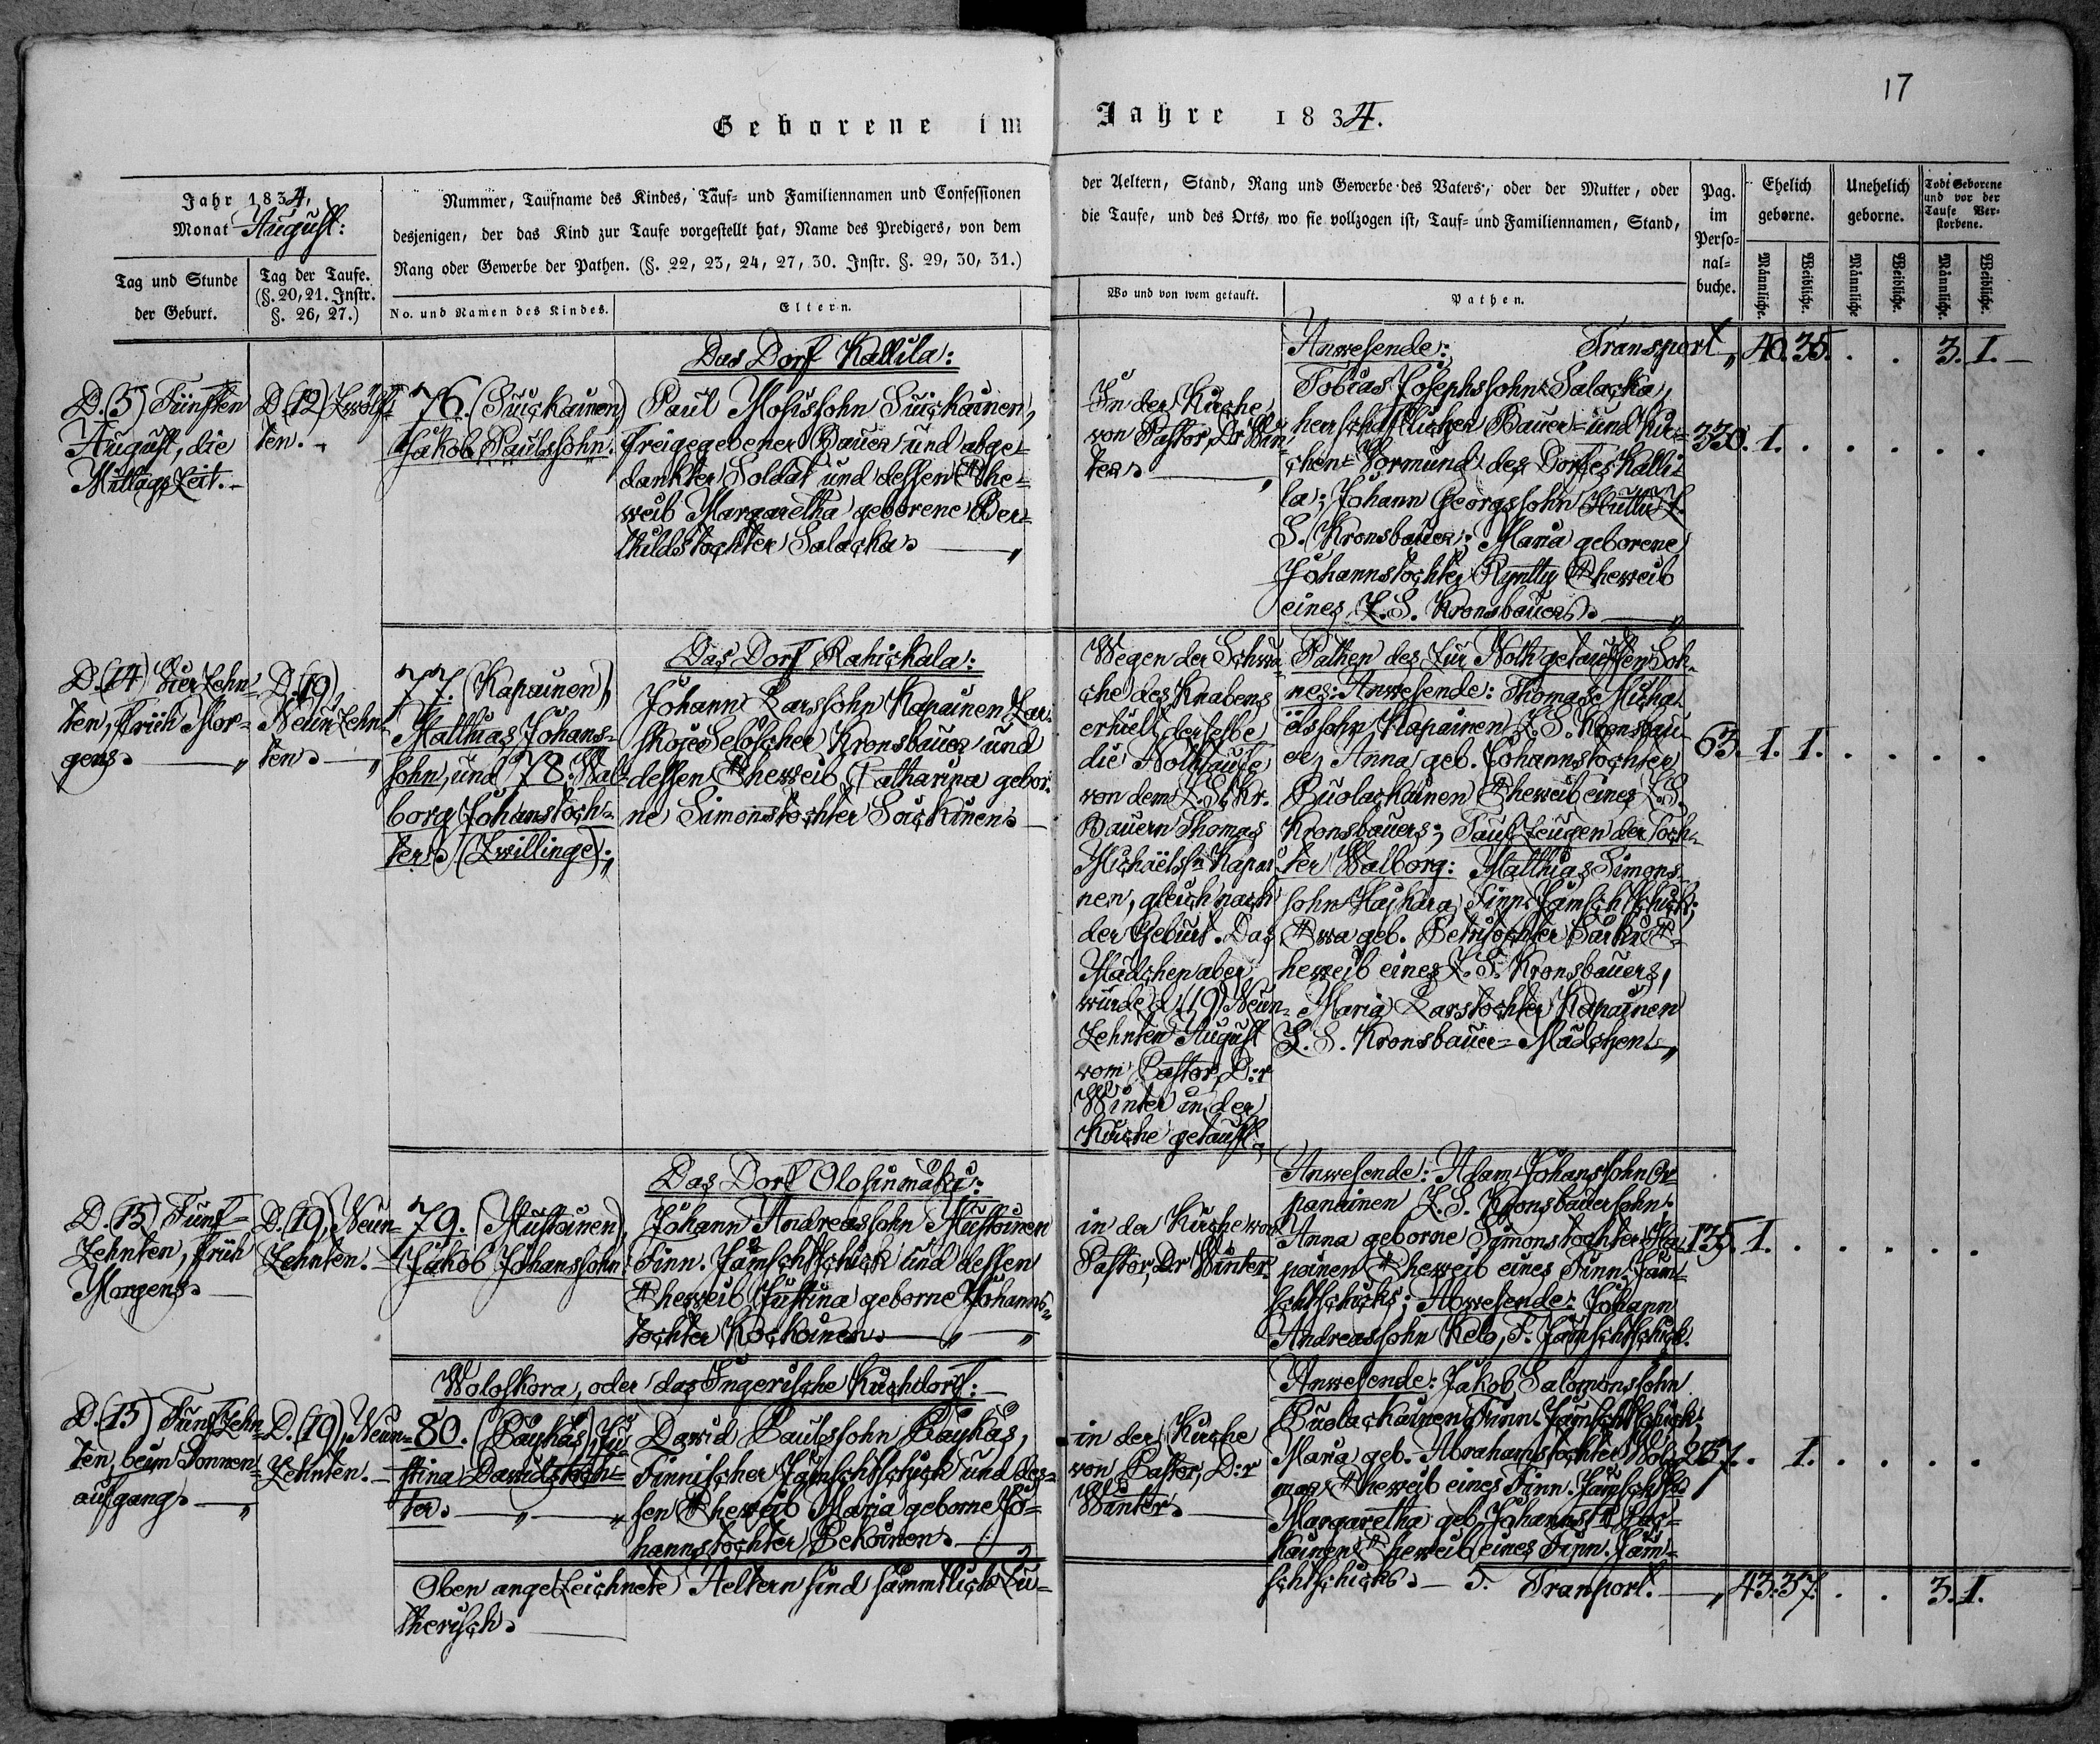 17
Geborene im Jahre 1834.
Jahr 1834,
Monat August:
Tag und Stunde
der Geburt.
Tag der Taufe.
(§. 20, 21. Instr.
§. 26, 27.)
Nummer, Taufname des Kindes, Tauf- und Familiennamen und Confessionen
desjenigen, der das Kind zur Taufe vorgestellt hat, Name des Predigers, von dem
Rang oder Gewerbe der Pathen. (§. 22, 23, 24, 27, 30. Instr. §. 29, 30, 31.)
No. und Namen des Kindes.
Eltern.
der Aeltern, Stand, Rang und Gewerbe des Vaters, oder der Mutter, oder
die Taufe, und des Orts, wo sie vollzogen ist, Tauf- und Familiennamen, Stand,
Wo und von wem getauft.
Pathen.
Pag.
im
Perso-
nal-
buche.
Ehelich
geborne.
Unehelich
geborne.
Todt Geborene
und vor der
Taufe Ver-
storbene.
Männliche.
Weibliche.
Männliche
Weibliche.
Männliche.
Weibliche.
Das Dorf Kallila:
D. (5) Fünften
August, die
Mittags Zeit.
D. (12) Zwölf-
ten.
76. (Suickainen)
Jakob Paulssohn.
Paul Mosissohn Suickainen,
freigegebener Bauer und abge-
dankter Soldat und dessen Ehe-
weib Margaretha geborene Ber-
thildstochter Salacka.
In der Kirche
von Pastor, Dr Win-
ter.
Anwesende:
Tobias Josephssohn Salacka,
herrschaftlicher Bauer und Kir-
chen-Vormund des Dorfes Kalli-
la; Johann Georgssohn Z.
S. Kronsbauer; Maria geborene
Johannstochter Ryntty Eheweib
eines Z. S. Kronsbauers.
Transport " 40. 35. . . 3. 1.
330. 1. . . . . .
Das Dorf Rahickala:
D. (14) Vierzehn-
ten, früh Mor-
gens.
D. (19)
Neunzehn-
ten.
77. (Kapainen),
Matthias Johans-
sohn, und 78. Wal-
borg Johanstoch-
ter. (Zwillinge).
Johann Larssohn Kapainen Zar-
skoje Seloscher Kronsbauer und
dessen Eheweib Catharina gebor-
ne Simonstochter Soickinen.
Wegen der Schwä-
che des Knabens
erhielt derselbe
die Nothtaufe
von dem Z. S. Kr.
Bauern Thomas
Michaëlss: Kapai-
nen, gleich nach
der Geburt. Das
Mädchen aber
wurde d. (19) Neun-
zehnten August
vom Pastor, D:r
Winter in der
Kirche getauft.
Pathen des zur Noth getauften Soh-
nes: Anwesende: Thomas Micha-
ëlssohn Kapainen Z. S. Kronsbau-
er, Anna geb. Johannstochter
Puolackainen Eheweib eines Z. S.
Kronsbauers; Taufzeugen der Toch-
ter Walborg: Matthias Simons-
sohn Finn. Jämschtschick;
Ewa geb. Petritochter E-
heweib eines Z. S. Kronsbauers,
Maria Larstochter Kapainen
Z. S. Kronsbauer-Mädchen.
63. 1. 1. . . . .
Das Dorf Olosinmäki:
D. (15) Fünf-
zehnten, früh
Morgens.
D. (19) Neun-
zehnten.
79. (Mustoinen),
Jakob Johanssohn.
Johann Andreassohn Mustoinen
Finn. Jämschtschick und dessen
Eheweib Justina geborne Johanns-
tochter Kockoinen.
in der Kirche von
Pastor, Dr Winter.
Anwesende: Adam Johanssohn
Z. S. Kronsbauersohn.
Anna geborne Simonstochter
Eheweib eines Finn. Jäm-
schtschicks; Abwesende: Johann
Andreassohn Kelo, F. Jämschtschick.
135. 1. . . . . .
Woloskora, oder das Ingerische Kirchdorf:
D. (15) Fünfzehn-
ten, beim Sonnen-
aufgang.
D. (19), Neun-
zehnten.
80. (Paykäs), Ju-
stina Dawidstoch-
ter.
Dawid Paulssohn Paykäs,
Finnischer Jämschtschick und des-
sen Eheweib Maria geborne Jo-
hannstochter Pekoinen.
in der Kirche
von Pastor, D:r
Winter.
Anwesende: Jakob Salomonssohn
Puolackainen Finn. Jämschtschick.
Maria geb. Abrahamstochter
Eheweib eines Finn.
Margaretha geb. Johannst:
Eheweib eines Finn. Jäm-
schtschicks.
237. . 1. . . . .
Oben angezeichnete Aeltern sind sämmtlich Lu-
therisch.
5. Tranport. " 43. 37. . . 3. 1.